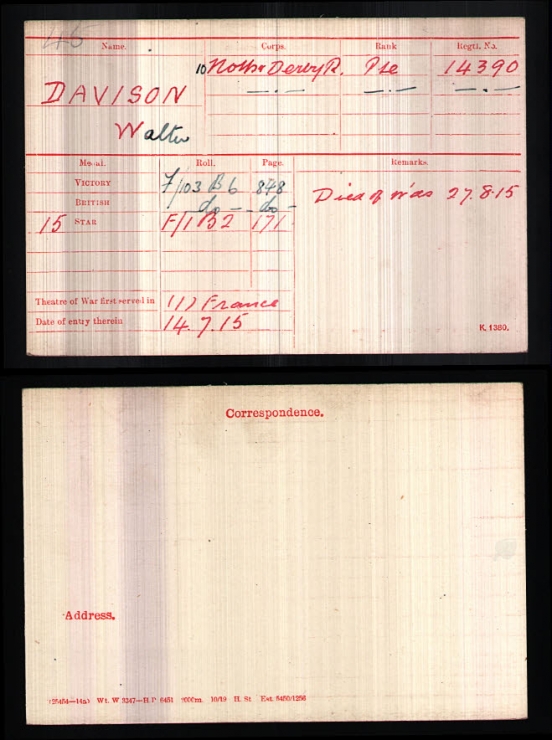 45
Name. Corps. Rank Regtl. No.
10 Notts & Derby R. Pte 14390
DAVISON — . — — . — — . —
Walter
Medal. Roll. Page. Remarks.
VICTORY F/103 B6 848
BRITISH do — do — Died of W'ds 27.8.15
15 STAR F/1 B2 171
Theatre of War first served in (1) France
Date of entry therein 14.7.15
K. 1380.
Correspondence.
Address.
(25454—14a) Wt. W 3347—H.P. 6451 2000m. 10/19 H. St Est. 5450/1256